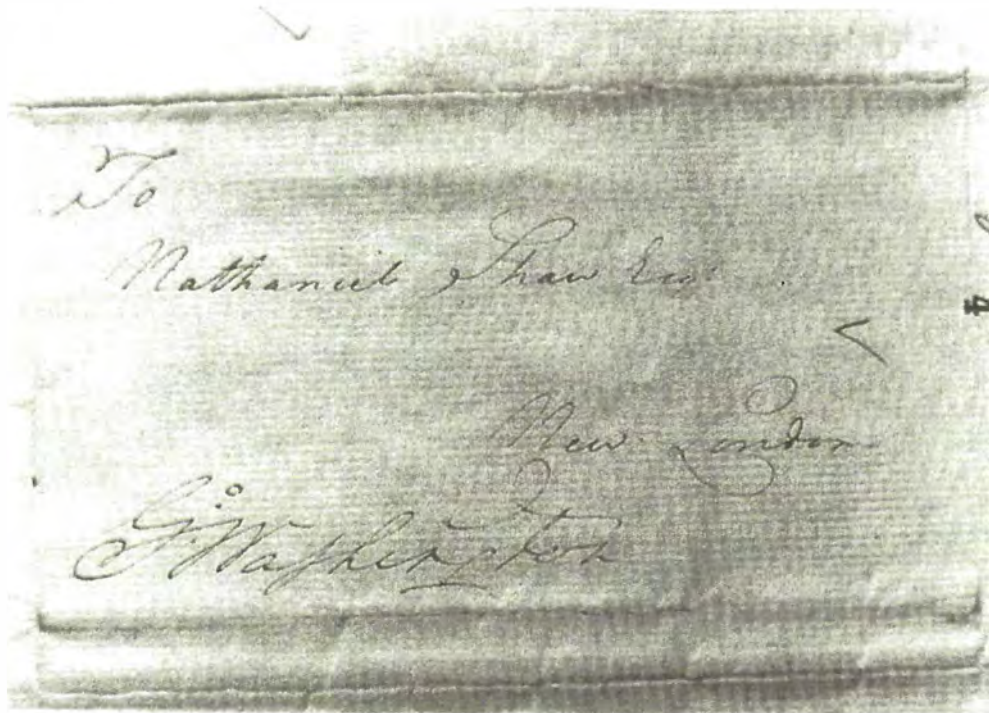 To
Nathaniel Shaw Esqr
New London
Go: Washington